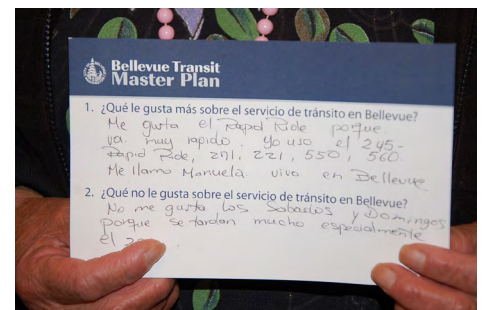 Bellevue Transit
Master Plan
1. ¿Qué le gusta más sobre el servicio de tránsito en Bellevue?
Me gusta el Rapid Ride porque
va muy rapido. Yo uso el 245-
Rapid Ride, 271, 221, 550, 560.
Me llamo Manuela. vivo en Bellevue
2. ¿Qué no le gusta sobre el servicio de tránsito en Bellevue?
No me gusta los Sabados y Domingos
porque se tardan mucho especialmente
el